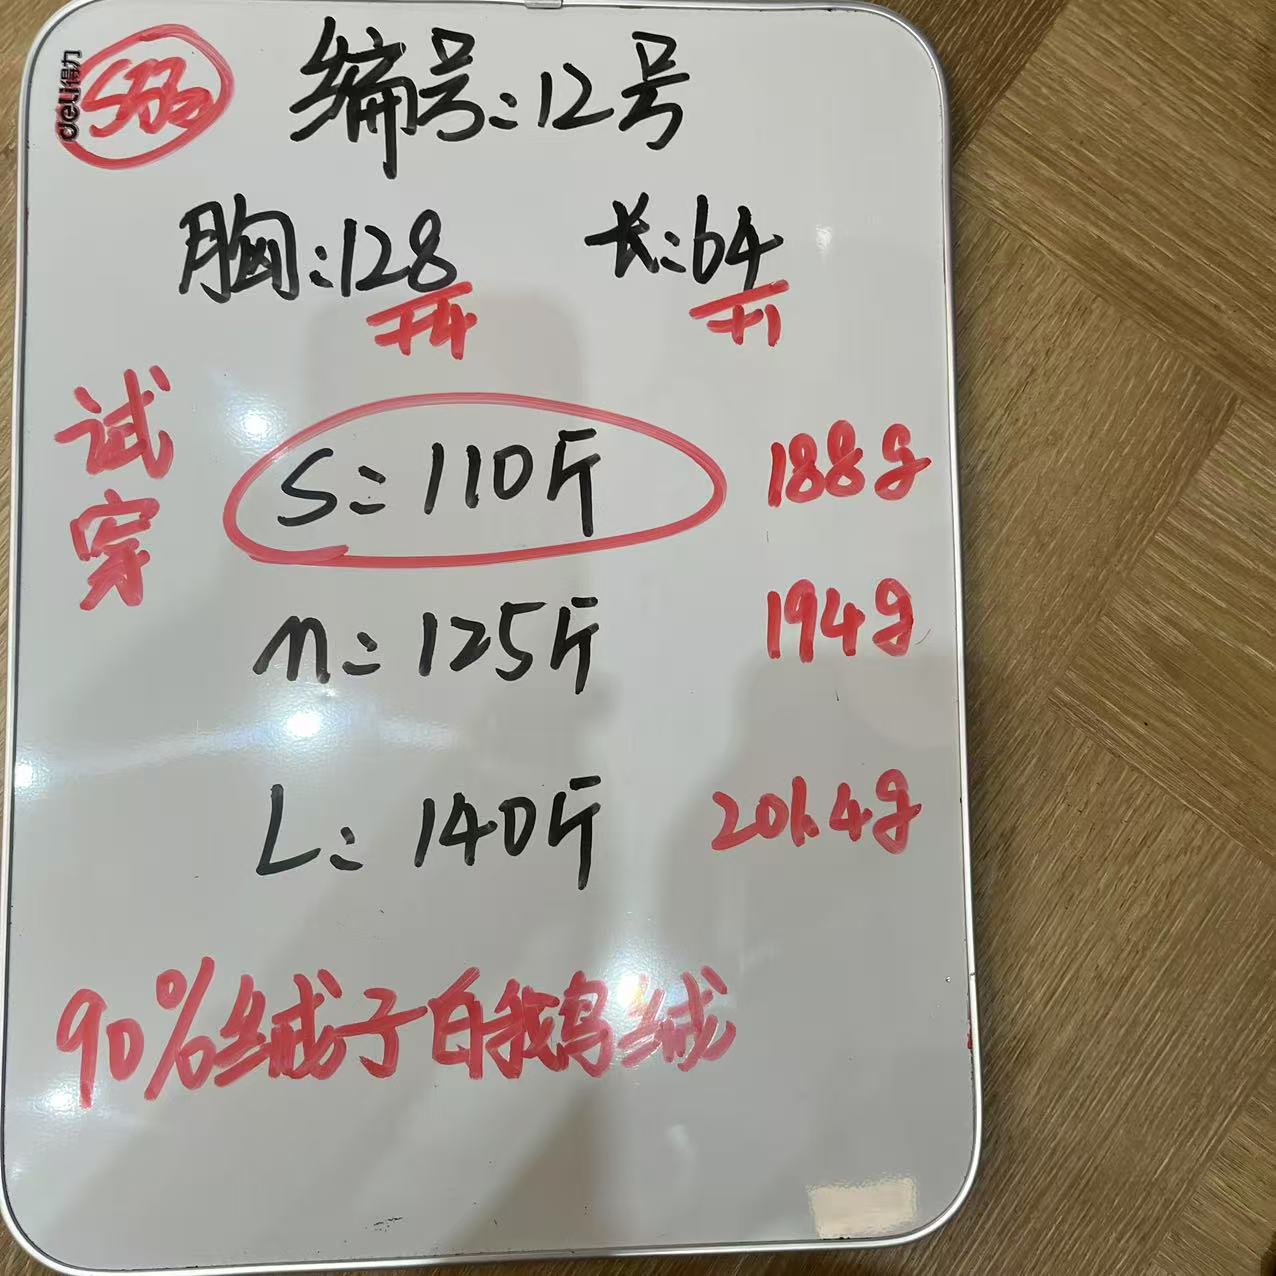 deli得力
S码 编号:12号
胸:128 长:64
+4 +1
试穿
S=110斤 188g
m=125斤 194g
L=140斤 201.4g
90%绒子白鹅绒